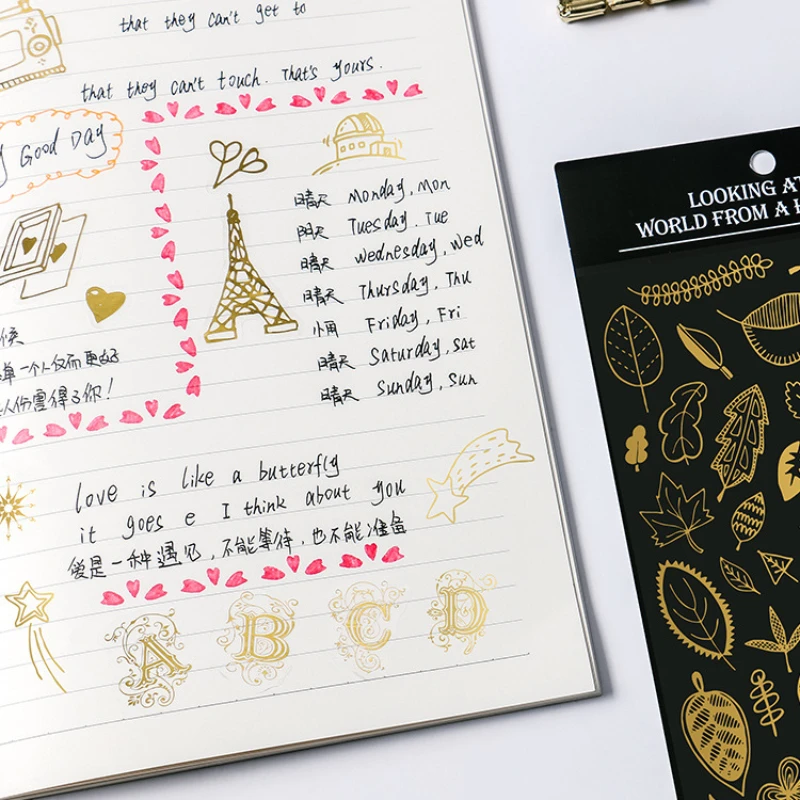 that they can't get to
that they can't touch. That's yours.
Good Day
晴天 Monday, Mon
阴天 Tuesday, Tue
晴天 Wednesday, Wed
晴天 Thursday, Thu
小雨 Friday, Fri
晴天 Saturday, Sat
晴天 Sunday, Sun
候
单一个人仅而更好
人伤害得了你！
love is like a butterfly
it goes e I think about you
爱是一种遇见，不能等待，也不能准备
A B C D
LOOKING AT
WORLD FROM A